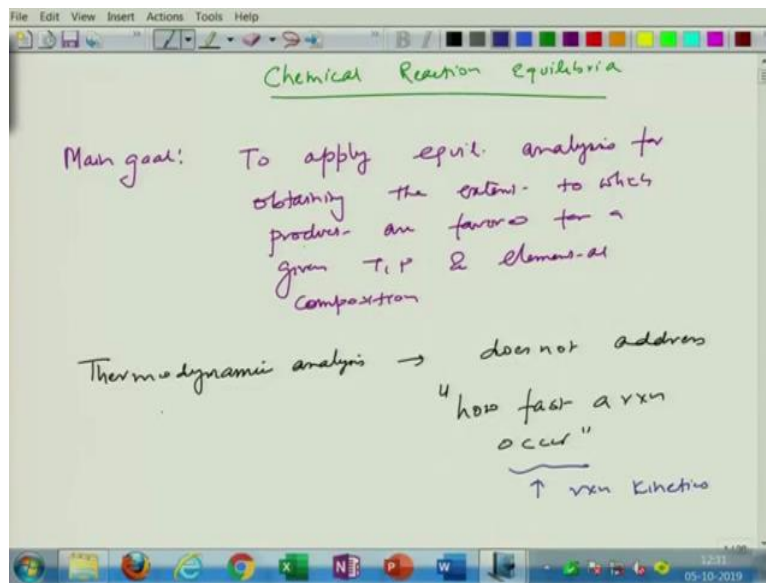 File Edit View Insert Actions Tools Help
Chemical Reaction Equilibria
Main goal: To apply equil. analysis for
obtaining the extent to which
products are favored for a
given T, P & elemental
composition
Thermodynamic analysis → does not address
"how fast a rxn
occur"
↑ rxn kinetics
12:31
05-10-2019